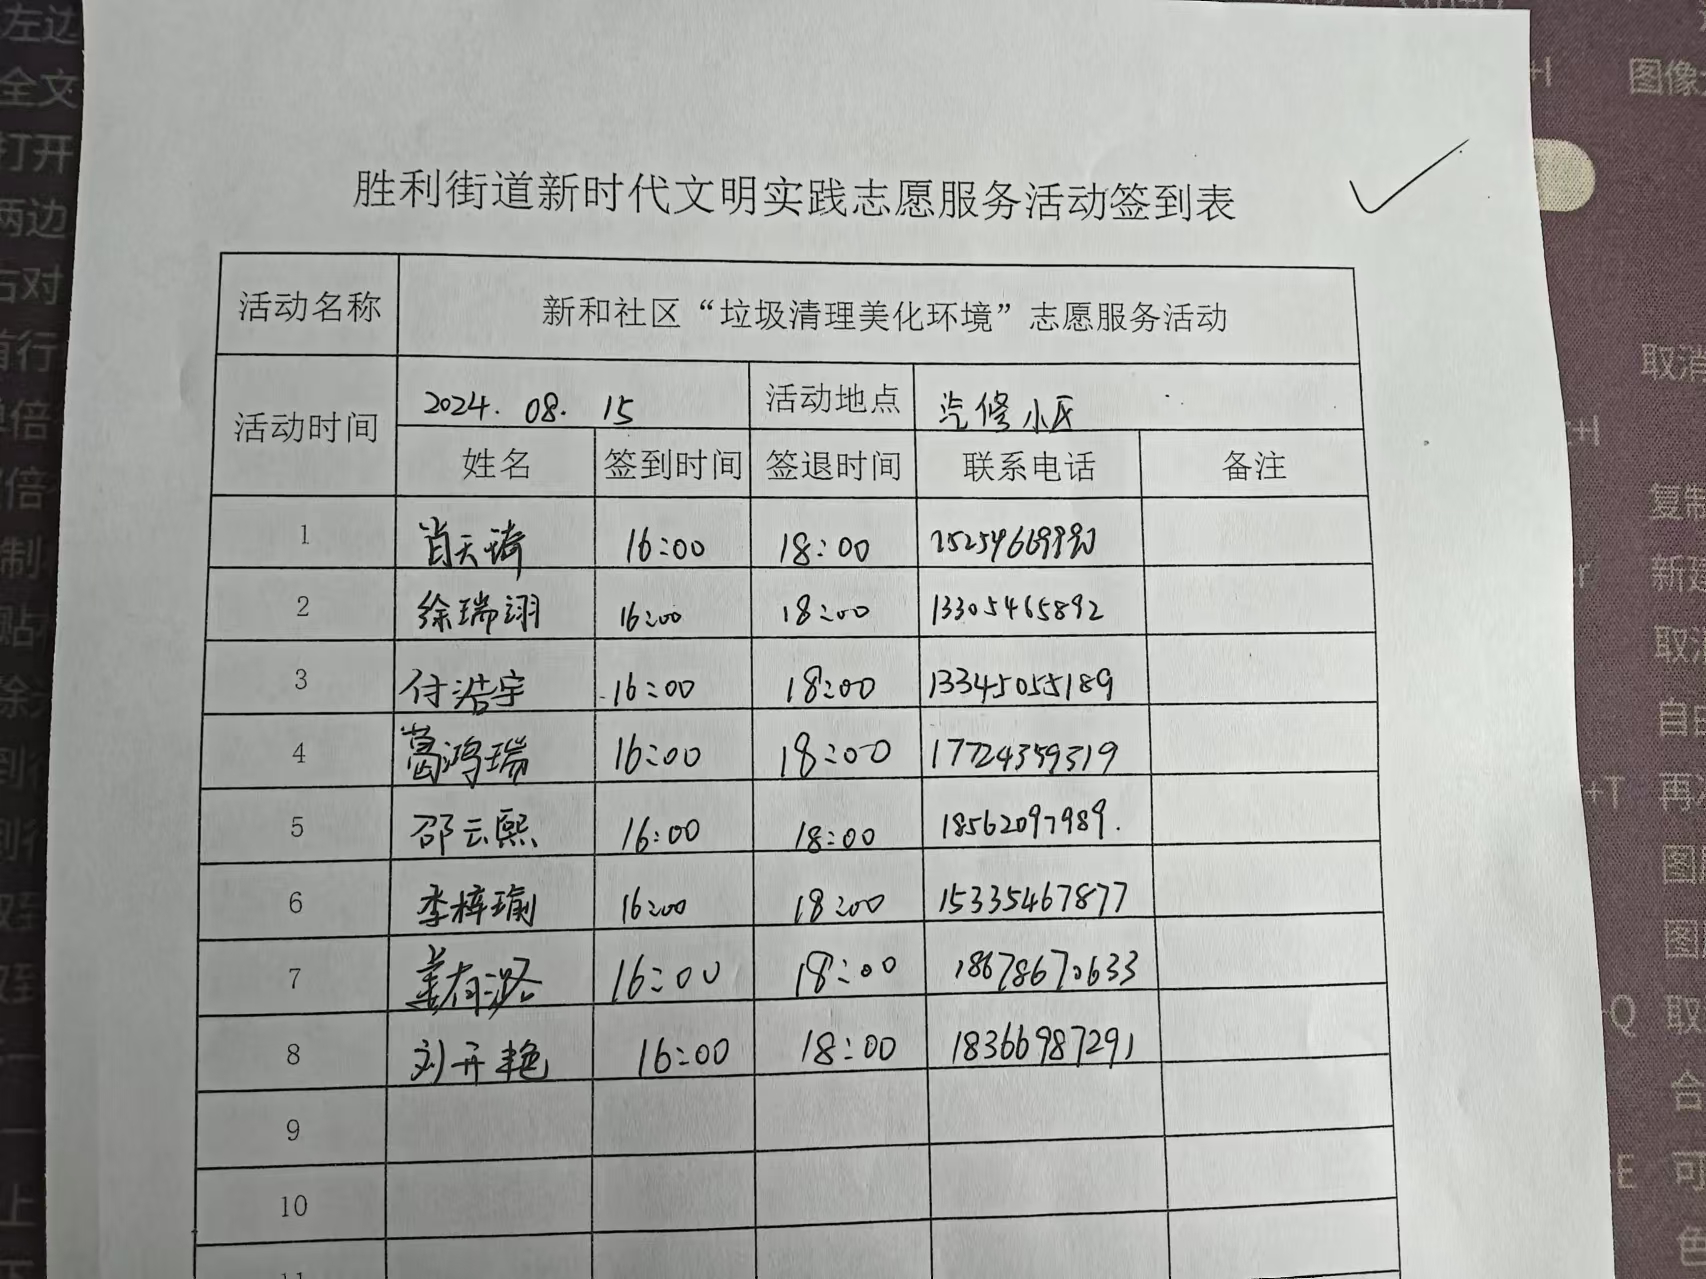 胜利街道新时代文明实践志愿服务活动签到表
活动名称 新和社区“垃圾清理美化环境”志愿服务活动
活动时间 2024.08.15 活动地点 汽修小区
姓名 签到时间 签退时间 联系电话 备注
1 肖天琦 16:00 18:00
2 徐瑞翊 16:00 18:00 13305465892
3 付浩宇 16:00 18:00 13345055189
4 葛鸿瑞 16:00 18:00 17724359319
5 邵云熙 16:00 18:00 18562097989.
6 李梓瑜 16:00 18:00 15335467877
7 姜有潞 16:00 18:00 18678670633
8 刘开艳 16:00 18:00 18366987291
9
10
11
左边
全文
打开
两边
右对
首行
单倍
除
到行
上
图像
取消
复制
新建
取消
自由
+T 再
图
图
Q 取
合
E 可
色